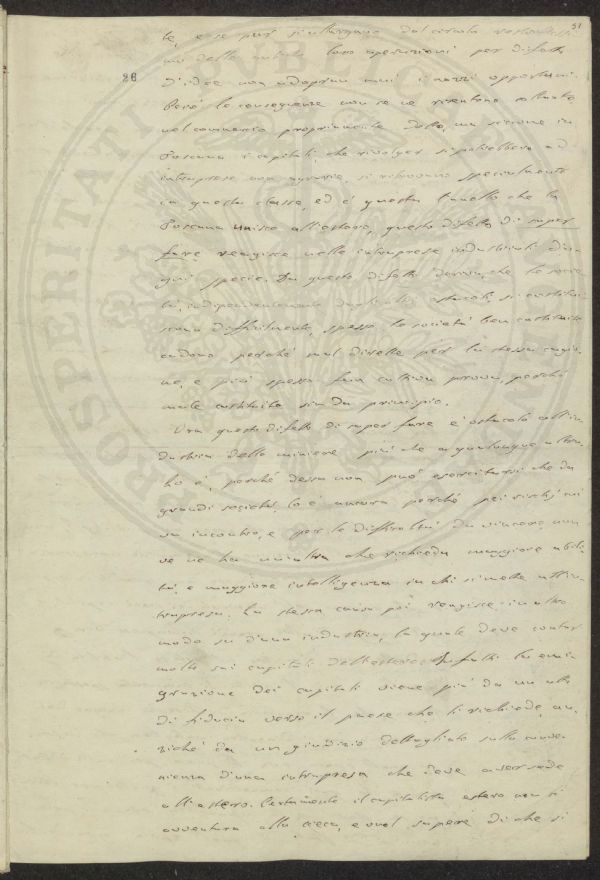 51
te, e se pur si allargano dal circolo
delle loro operazioni per difetto
26
d'idee non adoprano mai i mezzi opportuni.
Però le conseguenze non se ne risentono soltanto
nel commercio propriamente detto, ma siccome in
Toscana i capitali, che rivolger si potrebbero ad
intraprese non agrarie, si ritrovano specialmente
in questa classe, ed è questa quello che la
Toscana unisce all'estero, questo difetto di saper
fare reagisce nelle intraprese industriali d'o-
gni specie. Da questo difetto deriva, che le socie-
tà, indipendentemente dagli altri ostacoli, si costitui-
scono difficilmente, spesso le società ben costituite
cadono perché mal dirette per la stessa cagio-
ne, e più spesso fan cattiva prova, perché
male costituite sin da principio.
Ora questo difetto di saper fare è ostacolo all'in-
dustria delle miniere più che a qualunque altra.
Lo è, perché dessa non può esercitarsi che da
grandi società, lo è ancora perché pei rischj cui
va incontro, e per le difficoltà da vincere non
ve ne ha un'altra che richieda maggiore abili-
tà, e maggiore intelligenza in chi si mette all'in-
trapresa. La stessa causa poi reagisce in altro
modo su d'una industria, la quale deve contar
molto sui capitali dell'estero. Infatti la emi-
grazione dei capitali viene più da un atto
di fiducia verso il paese che li richiede, an-
ziché da un giudizio dettagliato sulla conve-
nienza d'una intrapresa che deve aver sede
all'estero. Certamente il capitalista estero non si
avventura alla cieca, e vuol sapere di che si